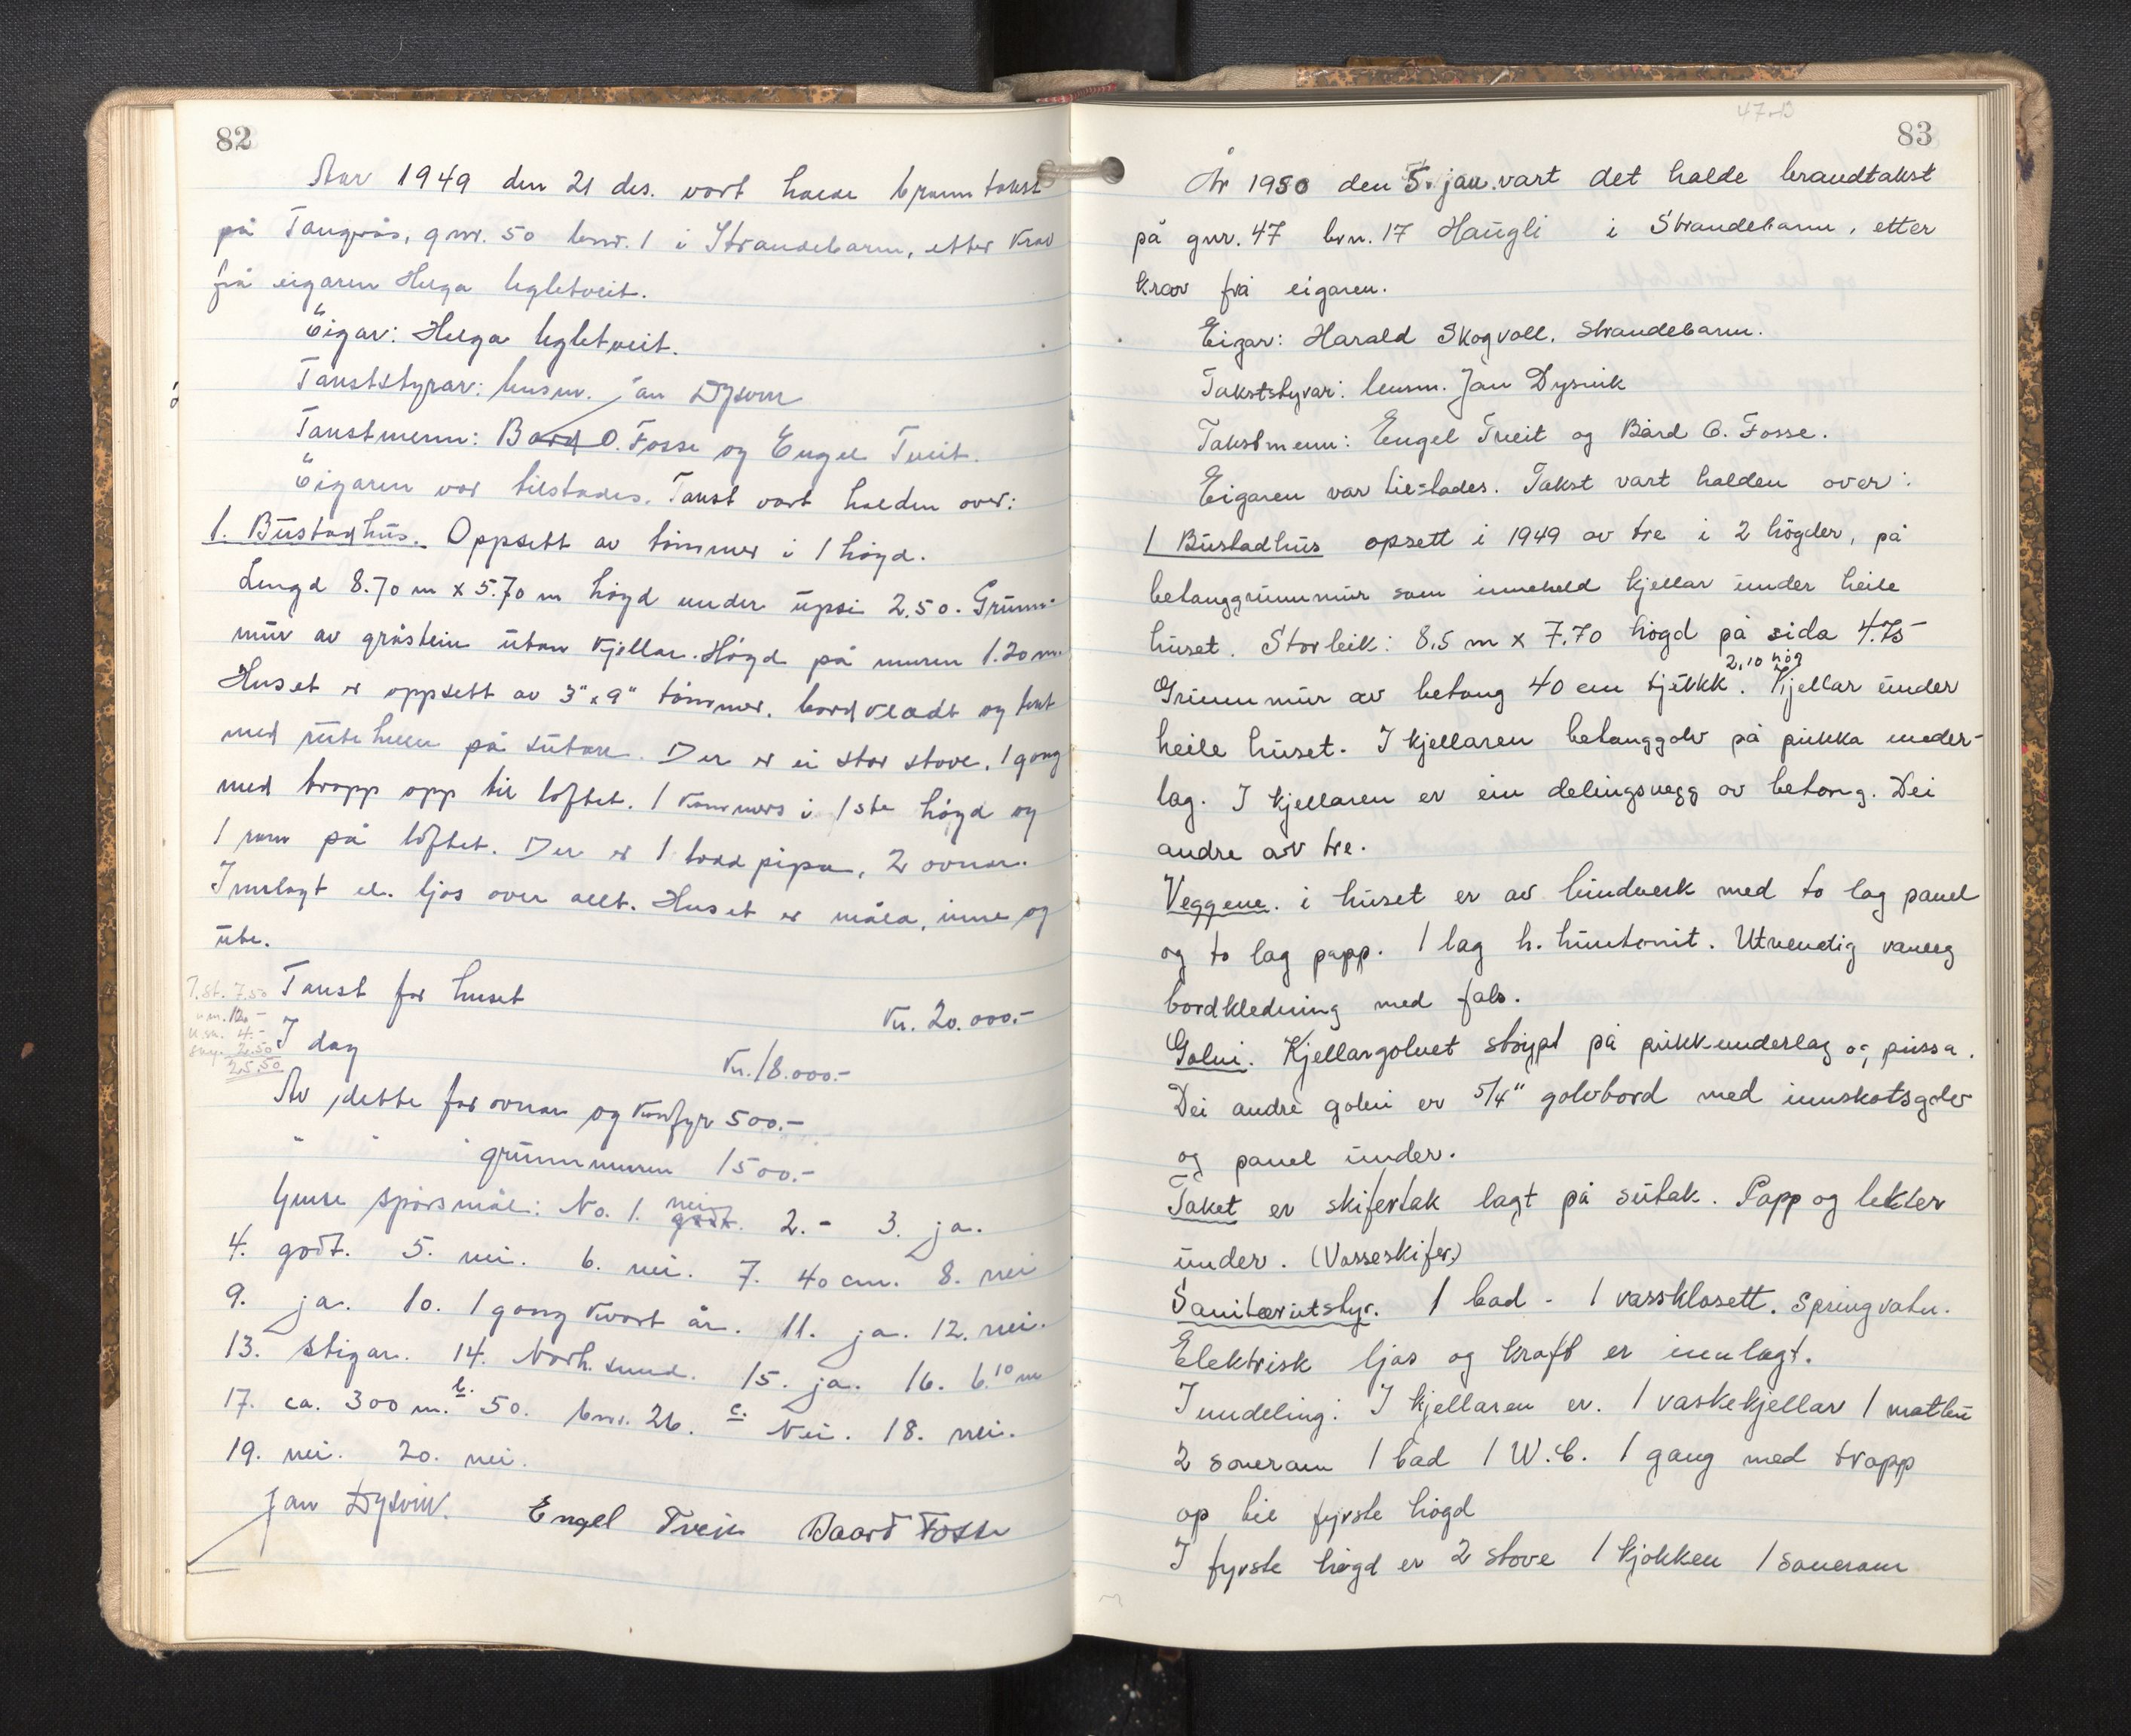 82
Aar 1949 den 21 des. vart halde branntakst
på Tangerås, gnr. 50 bnr. 1 i Strandebarm, etter krav
frå eigaren Helga Ugletveit.
Eigar: Helga Ugletveit.
Takststyrar: lensm. Jan Dysvik
Takstmenn: Bård O. Fosse og Engel Tveit.
Eigaren var tilstades. Takst vart halden over:
1. Bustadhus. Oppsett av tømmer i 1 høgd.
Lengd 8.70 m x 5.70 m høgd under upsi 2.50. Grunn-
mur av gråstein utan kjellar. Høgd på muren 1.20 m.
Huset er oppsett av 3" x 9" tømmer, bordkledt og tekt
med ruteheller på sutak. Der er ei stor stove, 1 gong
med tropp opp til loftet. 1 kammers i 1ste høgd og
1 rom på loftet. Der er 1 loddpipa, 2 ovnar.
Innlagt el. ljos over allt. Huset er måla, inne og
ute.
Takst for huset
kr. 20.000.-
7.50
12.-
4.-
2.50
25.50
I dag
kr. 18.000.-
Av dette for ovnar og komfyr 500.-
" " " grunnmuren 1500.-
Ymse spørsmål: No. 1. nei godt. 2. - 3. ja.
4. godt. 5. nei. 6. nei. 7. 40 cm. 8. nei
9. ja. 10. 1 gong kvart år. 11. ja. 12. nei.
13. stigar. 14. Norh.sund. 15. ja. 16. 6.10 m
17. ca. 300 m. b. 50. bnr. 26. c. Nei. 18. nei.
19. nei. 20. nei.
Jan Dysvik. Engel Tveit Baard Fosse
47-13
83
År 1950 den 5. jan. vart det halde brandtakst
på gnr. 47 brn. 17 Haugli i Strandebarm, etter
krav frå eigaren.
Eigar: Harald Skogvoll, Strandebarm.
Takststyrar: lensm. Jan Dysvik
Takstmenn: Engel Tveit og Bård O. Fosse.
Eigaren var til-stades. Takst vart halden over:
1 Bustadhus opsett i 1949 av tre i 2 högder, på
betonggrunnmur som inneheld kjellar under heile
huset. Storleik: 8,5 m x 7.70 högd på sida 4.75
Grunnmur av betong 40 cm tjukk. 2,10 høg Kjellar under
heile huset. I kjellaren betonggolv på pukka under-
lag. I kjellaren er ein delingsvegg av betong. Dei
andre av tre.
Veggene. i huset er av bindverk med to lag panel
og to lag papp. 1 lag h. huntonit. Utvendig vanleg
bordkledning med fals.
Golvi. Kjellargolvet støypt på pukk-underlag og pussa.
Dei andre golvi er 5/4" golvbord med innskotsgolv
og panel under.
Taket er skifertak lagt på sutak. Papp og lekter
under. (Vosseskifer)
Sanitærutstyr. 1 bad - 1 vassklosett. Springvatn.
Elektrisk ljos og kraft er innlagt.
Inndeling: I kjellaren er. 1 vaskekjellar 1 matbu
2 soverom 1 bad 1 W.C. 1 gang med trapp
op til fyrste högd
I fyrste högd er 2 stove 1 kjøkken 1 soverom